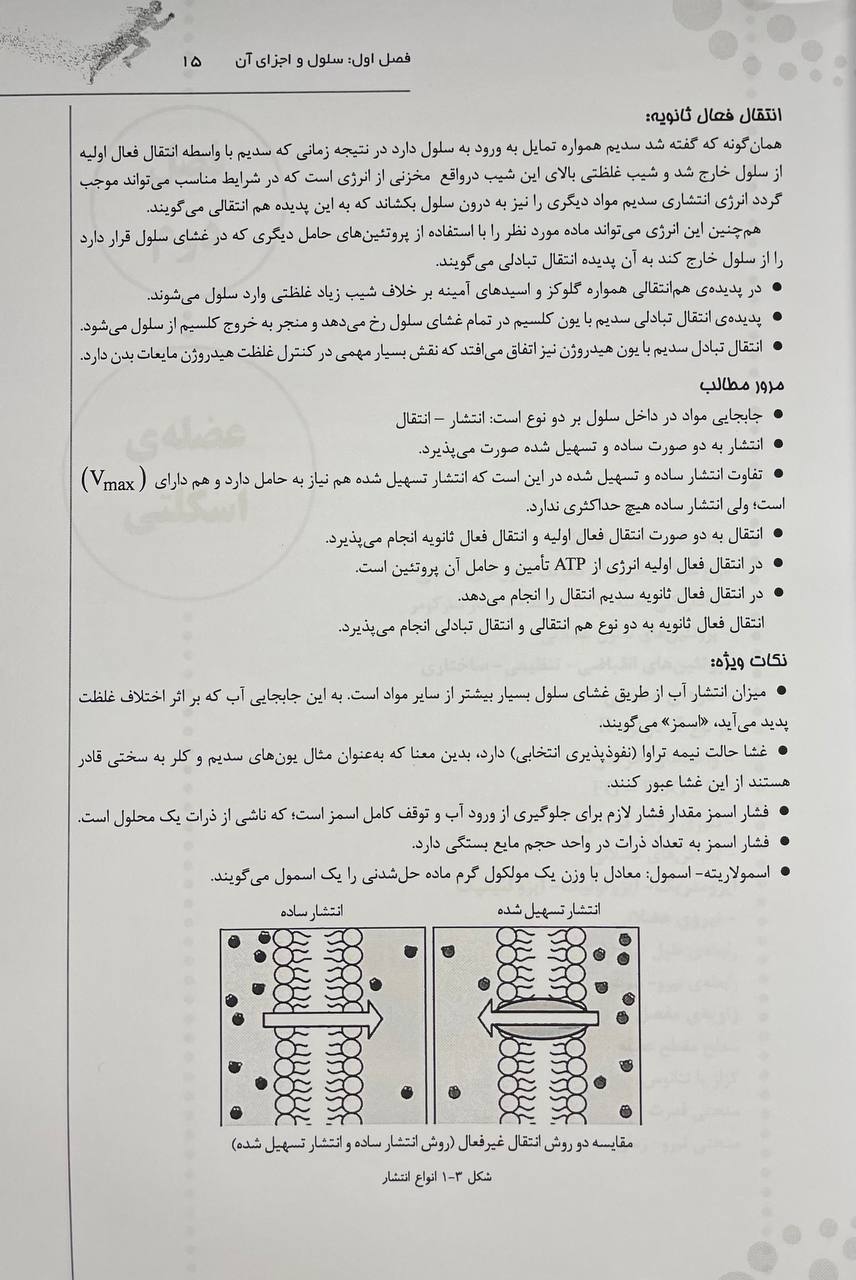 فصل اول: سلول و اجزای آن ۱۵
انتقال فعال ثانویه:
همان‌گونه که گفته شد سدیم همواره تمایل به ورود به سلول دارد در نتیجه زمانی که سدیم با واسطه انتقال فعال اولیه
از سلول خارج شد و شیب غلظتی بالای این شیب درواقع مخزنی از انرژی است که در شرایط مناسب می‌تواند موجب
گردد انرژی انتشاری سدیم مواد دیگری را نیز به درون سلول بکشاند که به این پدیده هم انتقالی می‌گویند.
هم‌چنین این انرژی می‌تواند ماده مورد نظر را با استفاده از پروتئین‌های حامل دیگری که در غشای سلول قرار دارد
را از سلول خارج کند به آن پدیده انتقال تبادلی می‌گویند.
● در پدیده‌ی هم‌انتقالی همواره گلوکز و اسیدهای آمینه بر خلاف شیب زیاد غلظتی وارد سلول می‌شوند.
● پدیده‌ی انتقال تبادلی سدیم با یون کلسیم در تمام غشای سلول رخ می‌دهد و منجر به خروج کلسیم از سلول می‌شود.
● انتقال تبادل سدیم با یون هیدروژن نیز اتفاق می‌افتد که نقش بسیار مهمی در کنترل غلظت هیدروژن مایعات بدن دارد.
مرور مطالب
● جابجایی مواد در داخل سلول بر دو نوع است: انتشار – انتقال
● انتشار به دو صورت ساده و تسهیل شده صورت می‌پذیرد.
● تفاوت انتشار ساده و تسهیل شده در این است که انتشار تسهیل شده هم نیاز به حامل دارد و هم دارای (Vmax)
است؛ ولی انتشار ساده هیچ حداکثری ندارد.
● انتقال به دو صورت انتقال فعال اولیه و انتقال فعال ثانویه انجام می‌پذیرد.
● در انتقال فعال اولیه انرژی از ATP تأمین و حامل آن پروتئین است.
● در انتقال فعال ثانویه سدیم انتقال را انجام می‌دهد.
انتقال فعال ثانویه به دو نوع هم انتقالی و انتقال تبادلی انجام می‌پذیرد.
نکات ویژه:
● میزان انتشار آب از طریق غشای سلول بسیار بیشتر از سایر مواد است. به این جابجایی آب که بر اثر اختلاف غلظت
پدید می‌آید، «اسمز» می‌گویند.
● غشا حالت نیمه تراوا (نفوذپذیری انتخابی) دارد، بدین معنا که به‌عنوان مثال یون‌های سدیم و کلر به سختی قادر
هستند از این غشا عبور کنند.
● فشار اسمز مقدار فشار لازم برای جلوگیری از ورود آب و توقف کامل اسمز است؛ که ناشی از ذرات یک محلول است.
● فشار اسمز به تعداد ذرات در واحد حجم مایع بستگی دارد.
● اسمولاریته- اسمول: معادل با وزن یک مولکول گرم ماده حل‌شدنی را یک اسمول می‌گویند.
انتشار تسهیل شده
انتشار ساده
مقایسه دو روش انتقال غیرفعال (روش انتشار ساده و انتشار تسهیل شده)
شکل ۳-۱ انواع انتشار